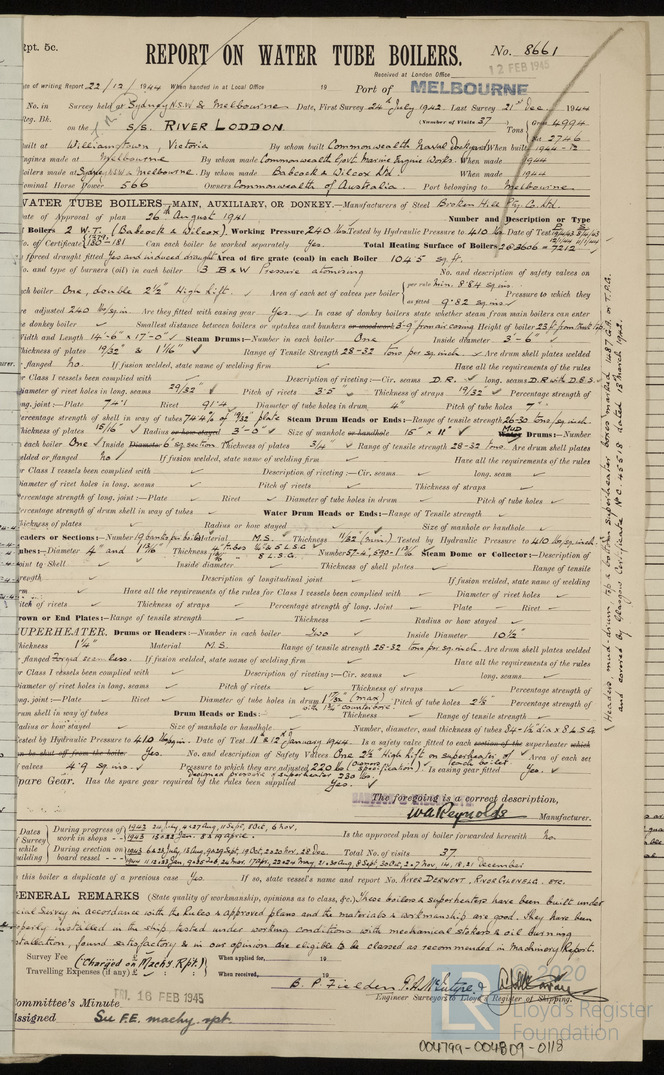 Rpt. 5c.
REPORT ON WATER TUBE BOILERS.
No. 8661
12 FEB 1945
Received at London Office
Date of writing Report 22/12/1944 When handed in at Local Office 19 Port of MELBOURNE
No. in Survey held at Sydney N.S.W & Melbourne Date, First Survey 24th July 1942 Last Survey 21st Dec. 1944
Reg. Bk. (Number of Visits 37)
on the S/S. RIVER LODDON Tons Gross 4994
Net 2746
Built at Williamstown, Victoria By whom built Commonwealth Naval Dockyard When built 1944-12
Engines made at Melbourne By whom made Commonwealth Govt. Marine Engine Works. When made 1944
Boilers made at Sydney N.S.W & Melbourne By whom made Babcock & Wilcox Ltd When made 1944
Nominal Horse Power 566 Owners Commonwealth of Australia. Port belonging to Melbourne
WATER TUBE BOILERS—MAIN, AUXILIARY, OR DONKEY.—Manufacturers of Steel Broken Hill Pty. Co. Ltd.
Date of Approval of plan 26th August 1941 Number and Description or Type
Boilers 2 W.T. (Babcock & Wilcox) Working Pressure 240 lbs Tested by Hydraulic Pressure to 410 lbs Date of Test
No. of Certificate 180-181 Can each boiler be worked separately Yes. Total Heating Surface of Boilers 2@3606 = 7212
Is forced draught fitted Yes and induced draught Area of fire grate (coal) in each Boiler 104.5 sq. ft.
No. and type of burners (oil) in each boiler 3 B&W Pressure atomising No. and description of safety valves on
each boiler One, double 2½" High Lift. Area of each set of valves per boiler per rule min. 8.84 sq. ins.
as fitted 9.82 sq. ins Pressure to which they
are adjusted 240 lbs/sq.in. Are they fitted with easing gear Yes. In case of donkey boilers state whether steam from main boilers can enter
the donkey boiler Smallest distance between boilers or uptakes and bunkers or woodwork 3-9 from air casing Height of boiler
Width and Length 14'-6" x 17'-0" Steam Drums:—Number in each boiler One Inside diameter 3'-6"
Thickness of plates 19/32" & 1 1/16" Range of Tensile Strength 28-32 tons per sq. inch. Are drum shell plates welded
or flanged no If fusion welded, state name of welding firm Have all the requirements of the rules
for Class I vessels been complied with Description of riveting:—Cir. seams D.R. long. seams D.R with D.B.S
Diameter of rivet holes in long. seams 29/32" Pitch of rivets 3.5 Thickness of straps 19/32" Percentage strength of
long. joint:—Plate 74.1 Rivet 91.4 Diameter of tube holes in drum 4" Pitch of tube holes 7"
Percentage strength of shell in way of tubes 74.4% of 19/32" plate Steam Drum Heads or Ends:—Range of tensile strength 26-30 tons/sq. inch.
Thickness of plates 15/16" Radius or how stayed 3'-0" Size of manhole or handhole 15" x 11" Mud Water Drums:—Number
in each boiler One Inside Diameter 6" sq. section Thickness of plates 3/4" Range of tensile strength 28-32 tons. Are drum shell plates
welded or flanged no If fusion welded, state name of welding firm Have all the requirements of the rules
for Class I vessels been complied with Description of riveting:—Cir. seams long. seam
Diameter of rivet holes in long. seams Pitch of rivets Thickness of straps
Percentage strength of long. joint:—Plate Rivet Diameter of tube holes in drum Pitch of tube holes
Percentage strength of drum shell in way of tubes Water Drum Heads or Ends:—Range of Tensile strength
Thickness of plates Radius or how stayed Size of manhole or handhole
Headers or Sections:—Number 19 banks per boiler Material M.S. Thickness 11/32" (min). Tested by Hydraulic Pressure to 410 lbs sq. inch.
Tubes:—Diameter 4" and 1 13/16" Thickness Number Steam Dome or Collector:—Description of
Joint to Shell Inside diameter Thickness of shell plates Range of tensile
strength Description of longitudinal joint If fusion welded, state name of welding
firm Have all the requirements of the rules for Class I vessels been complied with Diameter of rivet holes
Pitch of rivets Thickness of straps Percentage strength of long. Joint Plate Rivet
Crown or End Plates:—Range of tensile strength Thickness Radius or how stayed
SUPERHEATER. Drums or Headers:—Number in each boiler Two Inside Diameter 10½"
Thickness 1¼" Material M.S. Range of tensile strength 28-32 tons per sq. inch. Are drum shell plates welded
or flanged Forged seamless. If fusion welded, state name of welding firm Have all the requirements of the rules
for Class I vessels been complied with Description of riveting:—Cir. seams long. seams
Diameter of rivet holes in long. seams Pitch of rivets Thickness of straps Percentage strength of
long. joint:—Plate Rivet Diameter of tube holes in drum 1 17/32" (max) with 1¾" counterbore. Pitch of tube holes 2⅛" Percentage strength of
drum shell in way of tubes Drum Heads or Ends:— Thickness Range of tensile strength
Radius or how stayed Size of manhole or handhole Number, diameter, and thickness of tubes 34-1½" dia x 8 L.S.G
Tested by Hydraulic Pressure to 410 lbs/sq.in. Date of Test 11th & 12th January 1944. Is a safety valve fitted to each section of the superheater which
can be shut off from the boiler Yes. No. and description of Safety Valves One 2½" High Lift on superheater of each boiler Area of each set
of valves 4.9 sq. ins. Pressure to which they are adjusted 220 lbs (Owners specification). Is easing gear fitted Yes.
Designed pressure of superheater 230 lbs.
Spare Gear. Has the spare gear required by the rules been supplied Yes.
The foregoing is a correct description,
W. A. Reynolds Manufacturer.
Dates of Survey while building
During progress of work in shops - -
During erection on board vessel - - -
Is the approved plan of boiler forwarded herewith no.
Total No. of visits 37.
Is this boiler a duplicate of a previous case Yes If so, state vessel's name and report No. RIVER DERWENT, RIVER GLENELG. ETC.
GENERAL REMARKS (State quality of workmanship, opinions as to class, &c.) These boilers & superheaters have been built under
Special Survey in accordance with the Rules & approved plans and the materials & workmanship are good. They have been
properly installed in the ship, tested under working conditions with mechanical stokers & oil burning
installation, found satisfactory & in our opinion are eligible to be classed as recommended in Machinery Report.
Survey Fee (Charged on Machy Rpt.) When applied for, 19
Travelling Expenses (if any) £ When received, 19
B. P. Fielden, F. A. McIntyre &
Engineer Surveyors to Lloyd's Register of Shipping.
Committee's Minute FRI. 16 FEB 1945
Assigned See F.E. machy. rpt.
Headers, mud-drum, top & bottom superheater boxes marked 1487 G.A. or T.P.G.
and covered by Glasgow Certificate No C. 45518 dated 13th March 1942.
© 2020
LR
Lloyd's Register
Foundation
004799-004809-0118